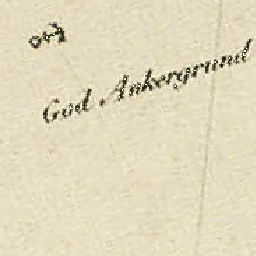 God Ankergrund